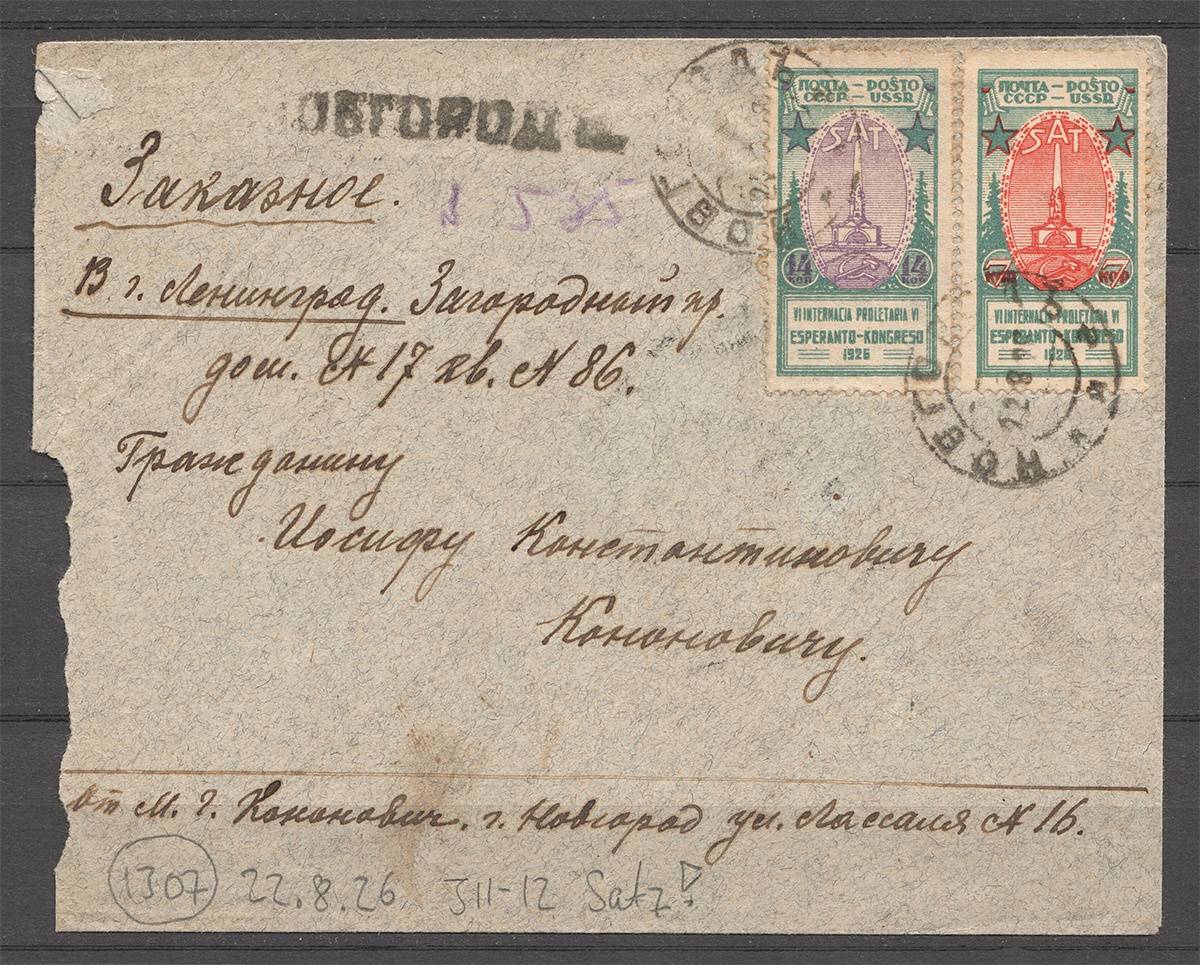 ПОЧТА – POŜTO
СССР – USSR
SAT
14 14
КОП КОП
VI INTERNACIA PROLETARIA VI
ESPERANTO–KONGRESO
1926
ПОЧТА – POŜTO
СССР – USSR
SAT
7 7
КОП КОП
VI INTERNACIA PROLETARIA VI
ESPERANTO–KONGRESO
1926
ОВГОРОД
Заказное.
В г. Ленинград. Загородный пр.
дом. № 17 кв. № 86.
Гражданину
Иосифу Константиновичу
Кононовичу.
от М. Г. Кононович. г. Новгород ул. Лассаля № 16.
1307 22.8.26 J11-12 Satz!